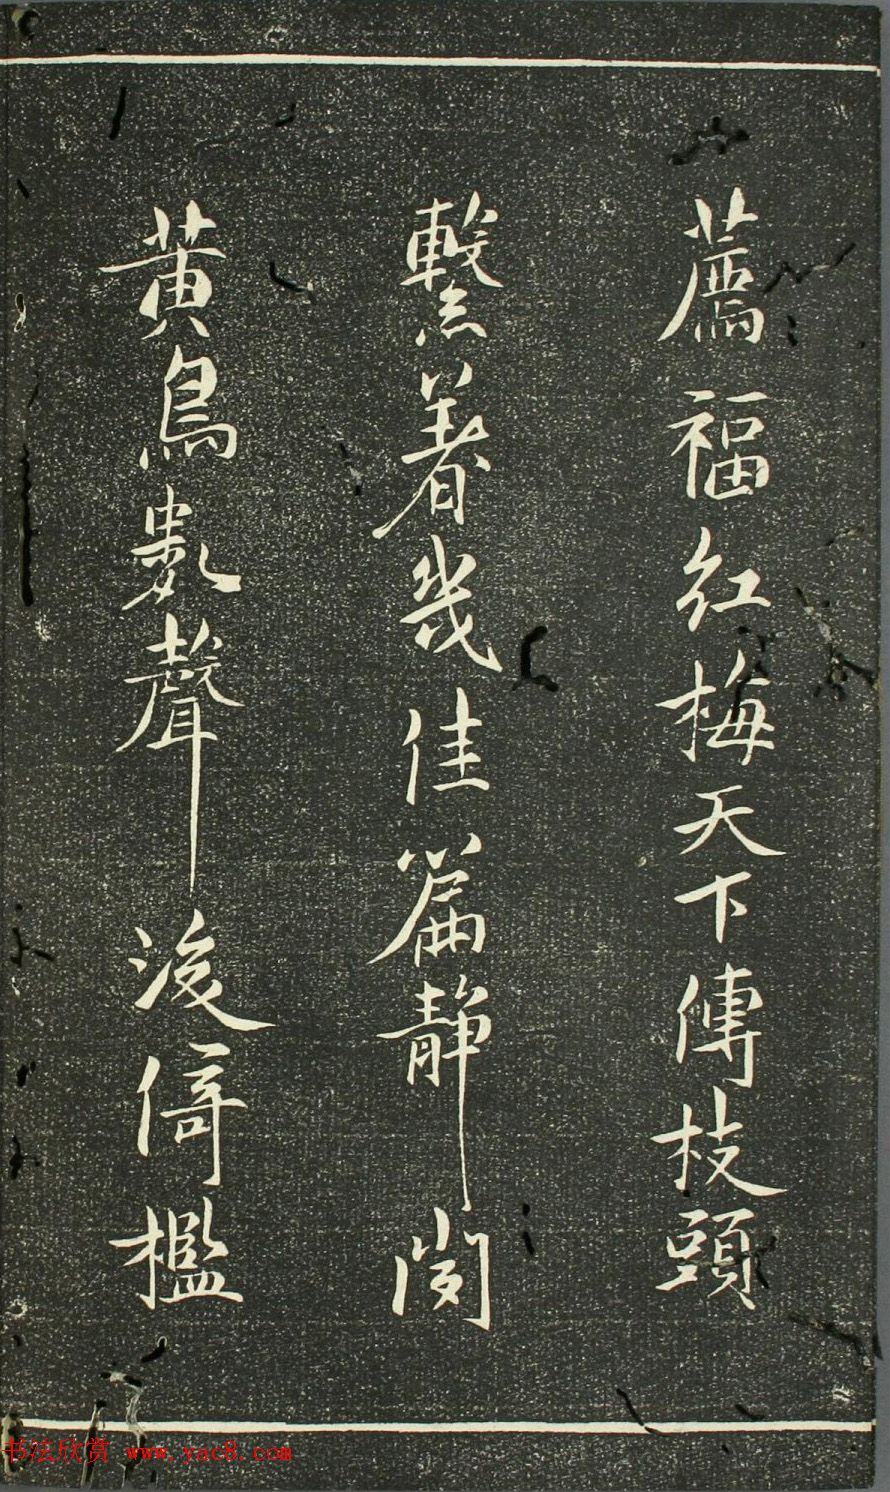 薦福紅梅天下傳枝頭
繫著幾佳篇靜聞
黃鳥數聲後倚檻
书法欣赏 www.yac8.com